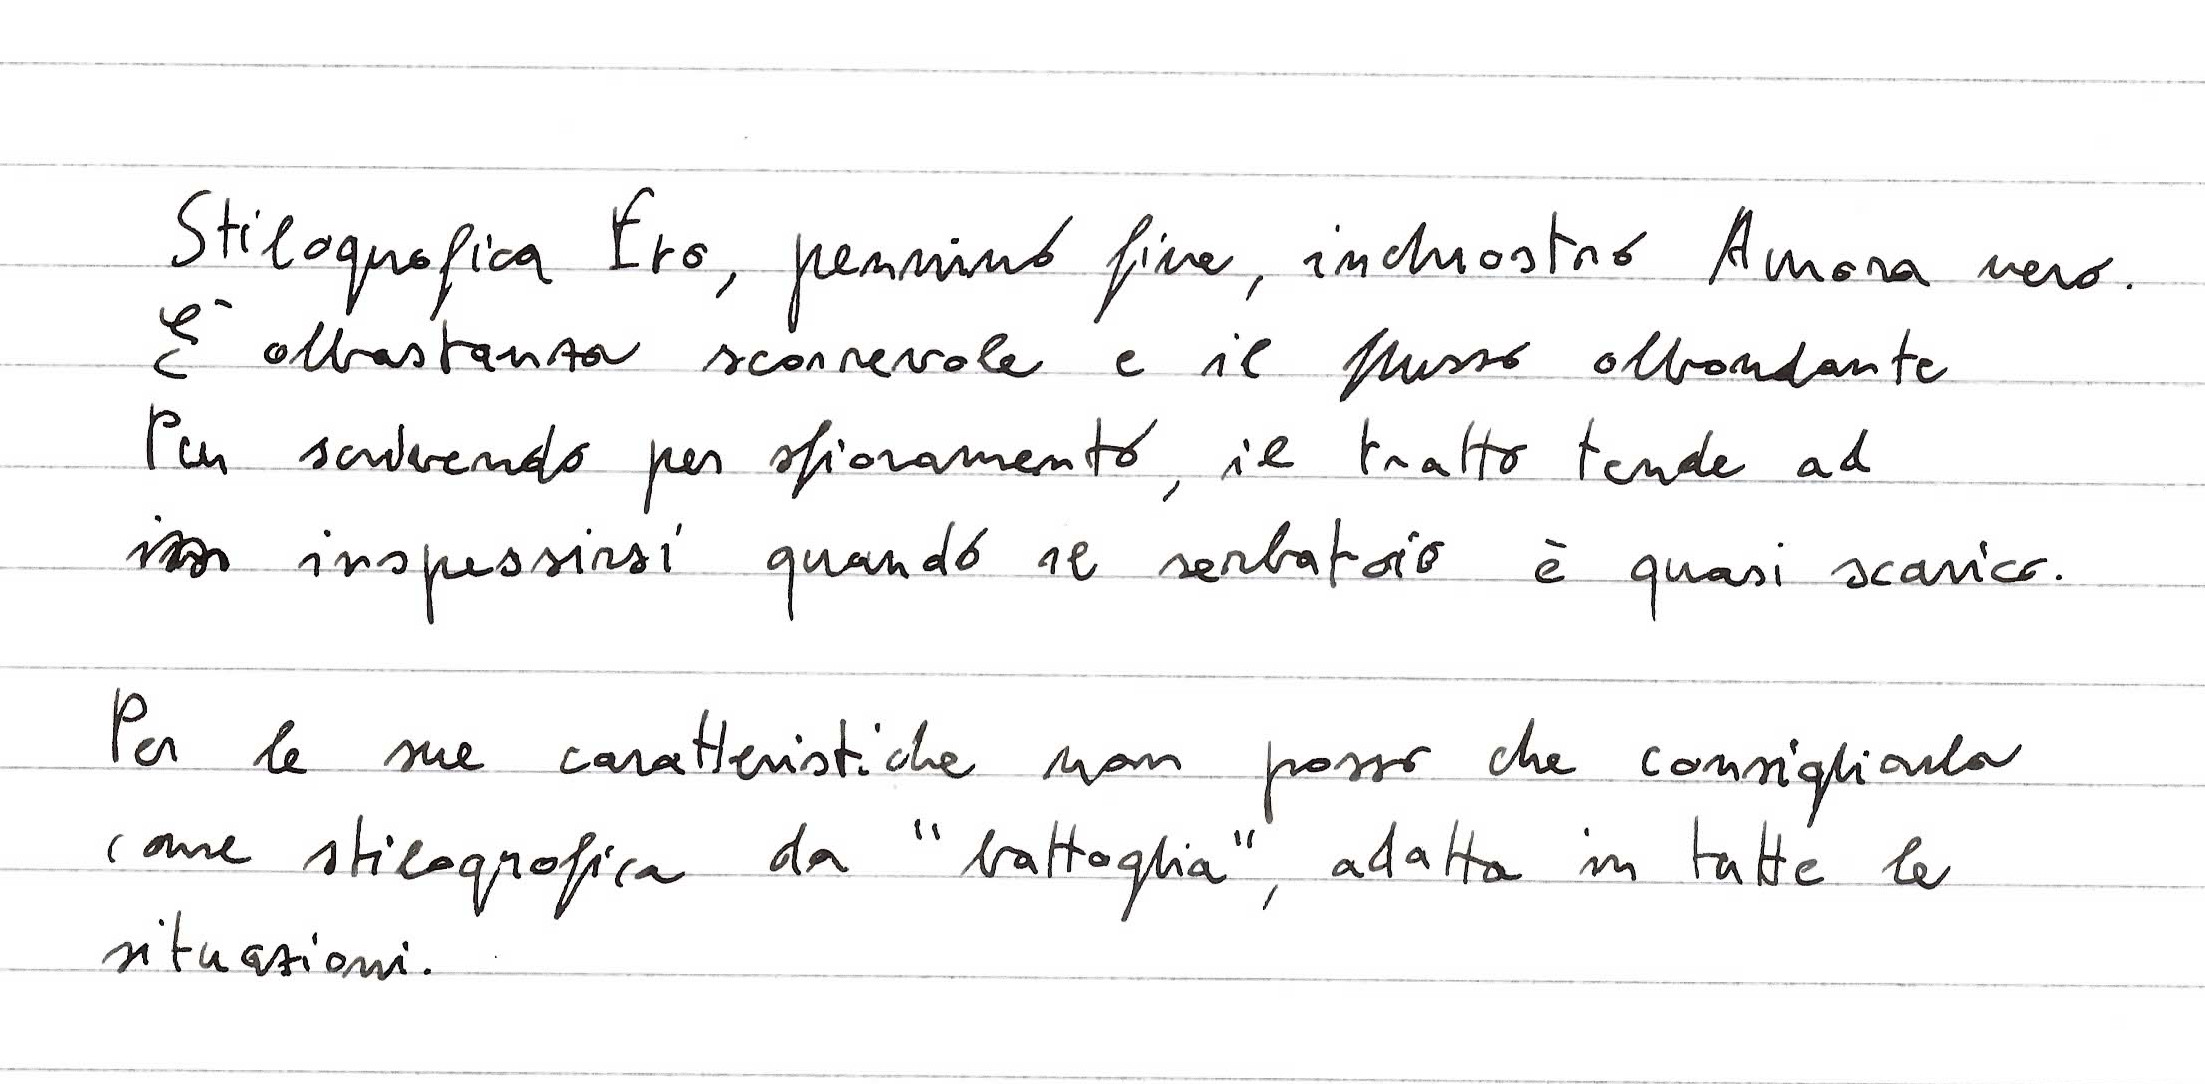 Stilografica Ero, pennino fine, inchiostro Amora nero.
È abbastanza scorrevole e il flusso abbondante
Pur scrivendo per sfioramento, il tratto tende ad
inspessirsi quando il serbatoio è quasi scarico.
Per le sue caratteristiche non posso che consigliarla
come stilografica da "battaglia", adatta in tutte le
situazioni.